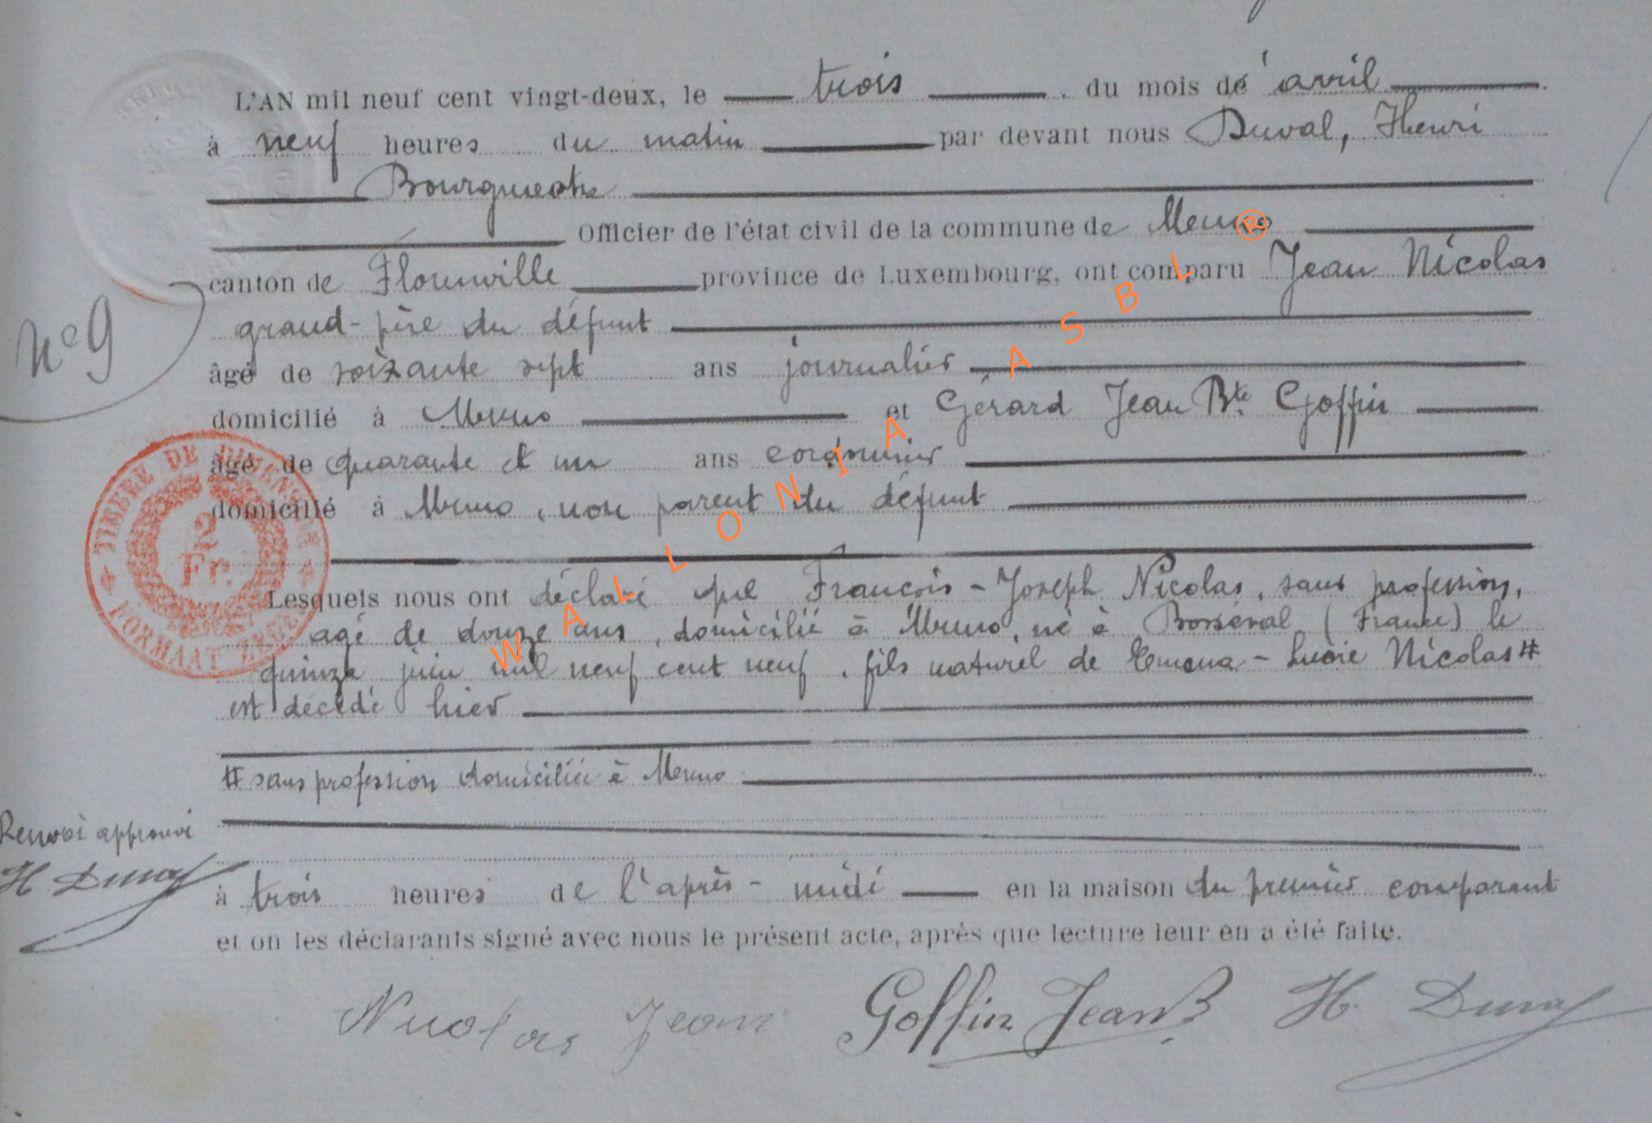 L'AN mil neuf cent vingt-deux, le trois du mois de avril
à neuf heures du matin par devant nous Duval, Henri
Bourgmestre
Officier de l'état civil de la commune de Muno
canton de Florenville province de Luxembourg, ont comparu Jean Nicolas
grand-père du défunt
N° 9
âgé de soixante sept ans journalier
domicilié à Muno et Gérard Jean Bte Goffin
âgé de quarante et un ans cordonnier
domicilié à Muno, non parent du défunt
TIMBRE DE DIMENSION
2
Fr.
FORMAAT ZEGEL
Lesquels nous ont déclaré que François-Joseph Nicolas, sans profession,
agé de douze ans, domicilié à Muno, né à Bosséval (France) le
quinze juin mil neuf cent neuf, fils naturel de Emma-Lucie Nicolas #
est décédé hier
# sans profession domiciliée à Muno
Renvoi approuvé
H Duval
à trois heures de l'après-midi en la maison du premier comparant
et on les déclarants signé avec nous le présent acte, après que lecture leur en a été faite.
Nicolas Jean Goffin Jean B H. Duval
WALLONIA ASBL ®